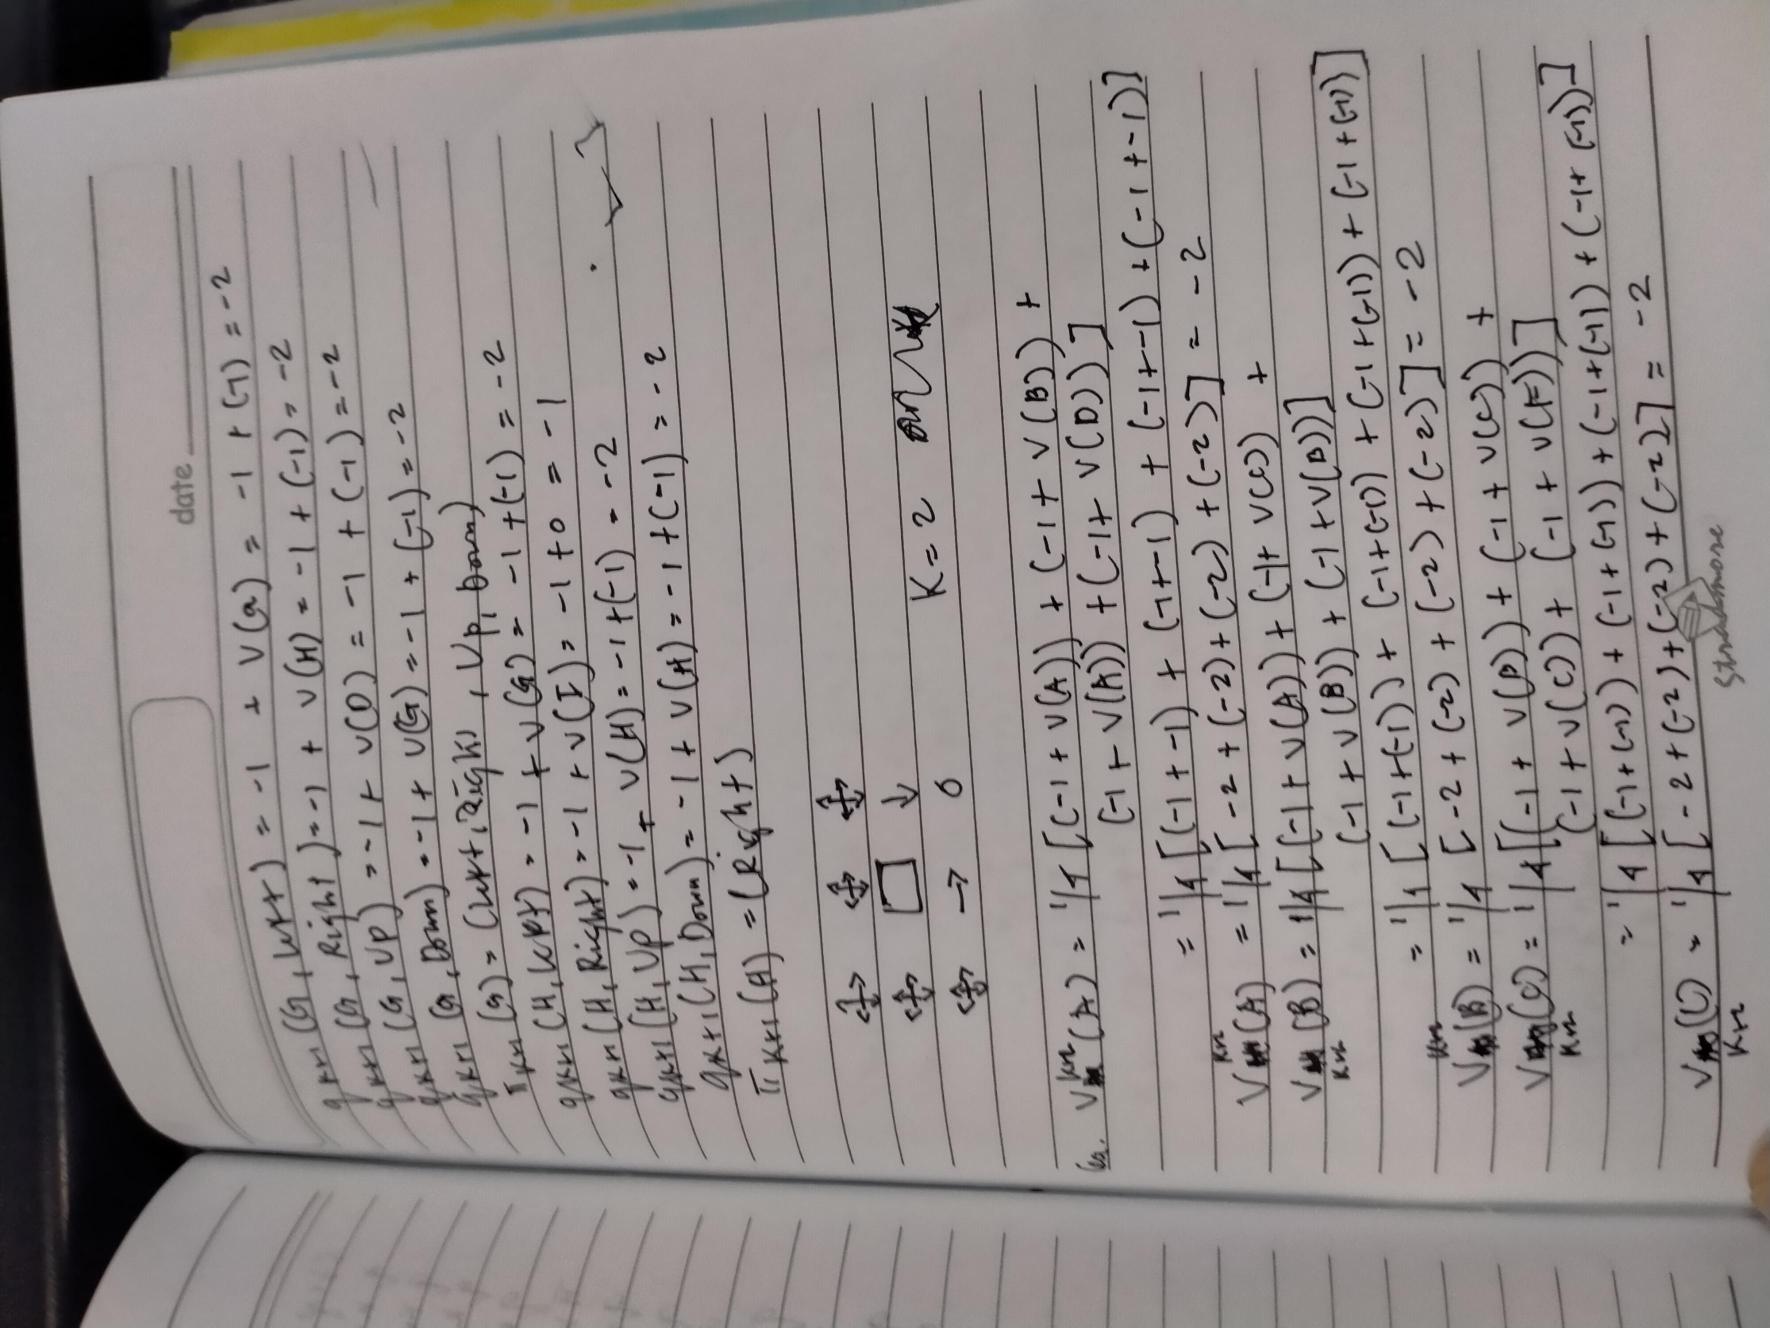 date
q k+1 (G, Left) = -1 + V(G) = -1 + (-1) = -2
q k+1 (G, Right) = -1 + V(H) = -1 + (-1) = -2
q k+1 (G, Up) = -1 + V(D) = -1 + (-1) = -2
q k+1 (G, Down) = -1 + V(G) = -1 + (-1) = -2
π k+1 (G) = (Left, Right, Up, Down)
q k+1 (H, Left) = -1 + V(G) = -1 + (-1) = -2
q k+1 (H, Right) = -1 + V(I) = -1 + 0 = -1
q k+1 (H, Up) = -1 + V(H) = -1 + (-1) = -2
q k+1 (H, Down) = -1 + V(H) = -1 + (-1) = -2
π k+1 (H) = (Right)
↓
→ 0
K = 2
6a. V k+2 (A) = 1/4 [(-1 + V(A)) + (-1 + V(B)) +
(-1 + V(A)) + (-1 + V(D))]
= 1/4 [(-1 + -1) + (-1 + -1) + (-1 + -1) + (-1 + -1)]
V k+2 (A) = 1/4 [-2 + (-2) + (-2) + (-2)] = -2
V k+2 (B) = 1/4 [(-1 + V(A)) + (-1 + V(C)) +
(-1 + V(B)) + (-1 + V(B))]
= 1/4 [(-1 + (-1)) + (-1 + (-1)) + (-1 + (-1)) + (-1 + (-1))]
V k+2 (B) = 1/4 [-2 + (-2) + (-2) + (-2)] = -2
V k+2 (C) = 1/4 [(-1 + V(B)) + (-1 + V(C)) +
(-1 + V(C)) + (-1 + V(F))]
= 1/4 [(-1 + (-1)) + (-1 + (-1)) + (-1 + (-1)) + (-1 + (-1))]
V k+2 (C) = 1/4 [-2 + (-2) + (-2) + (-2)] = -2
Stradmore